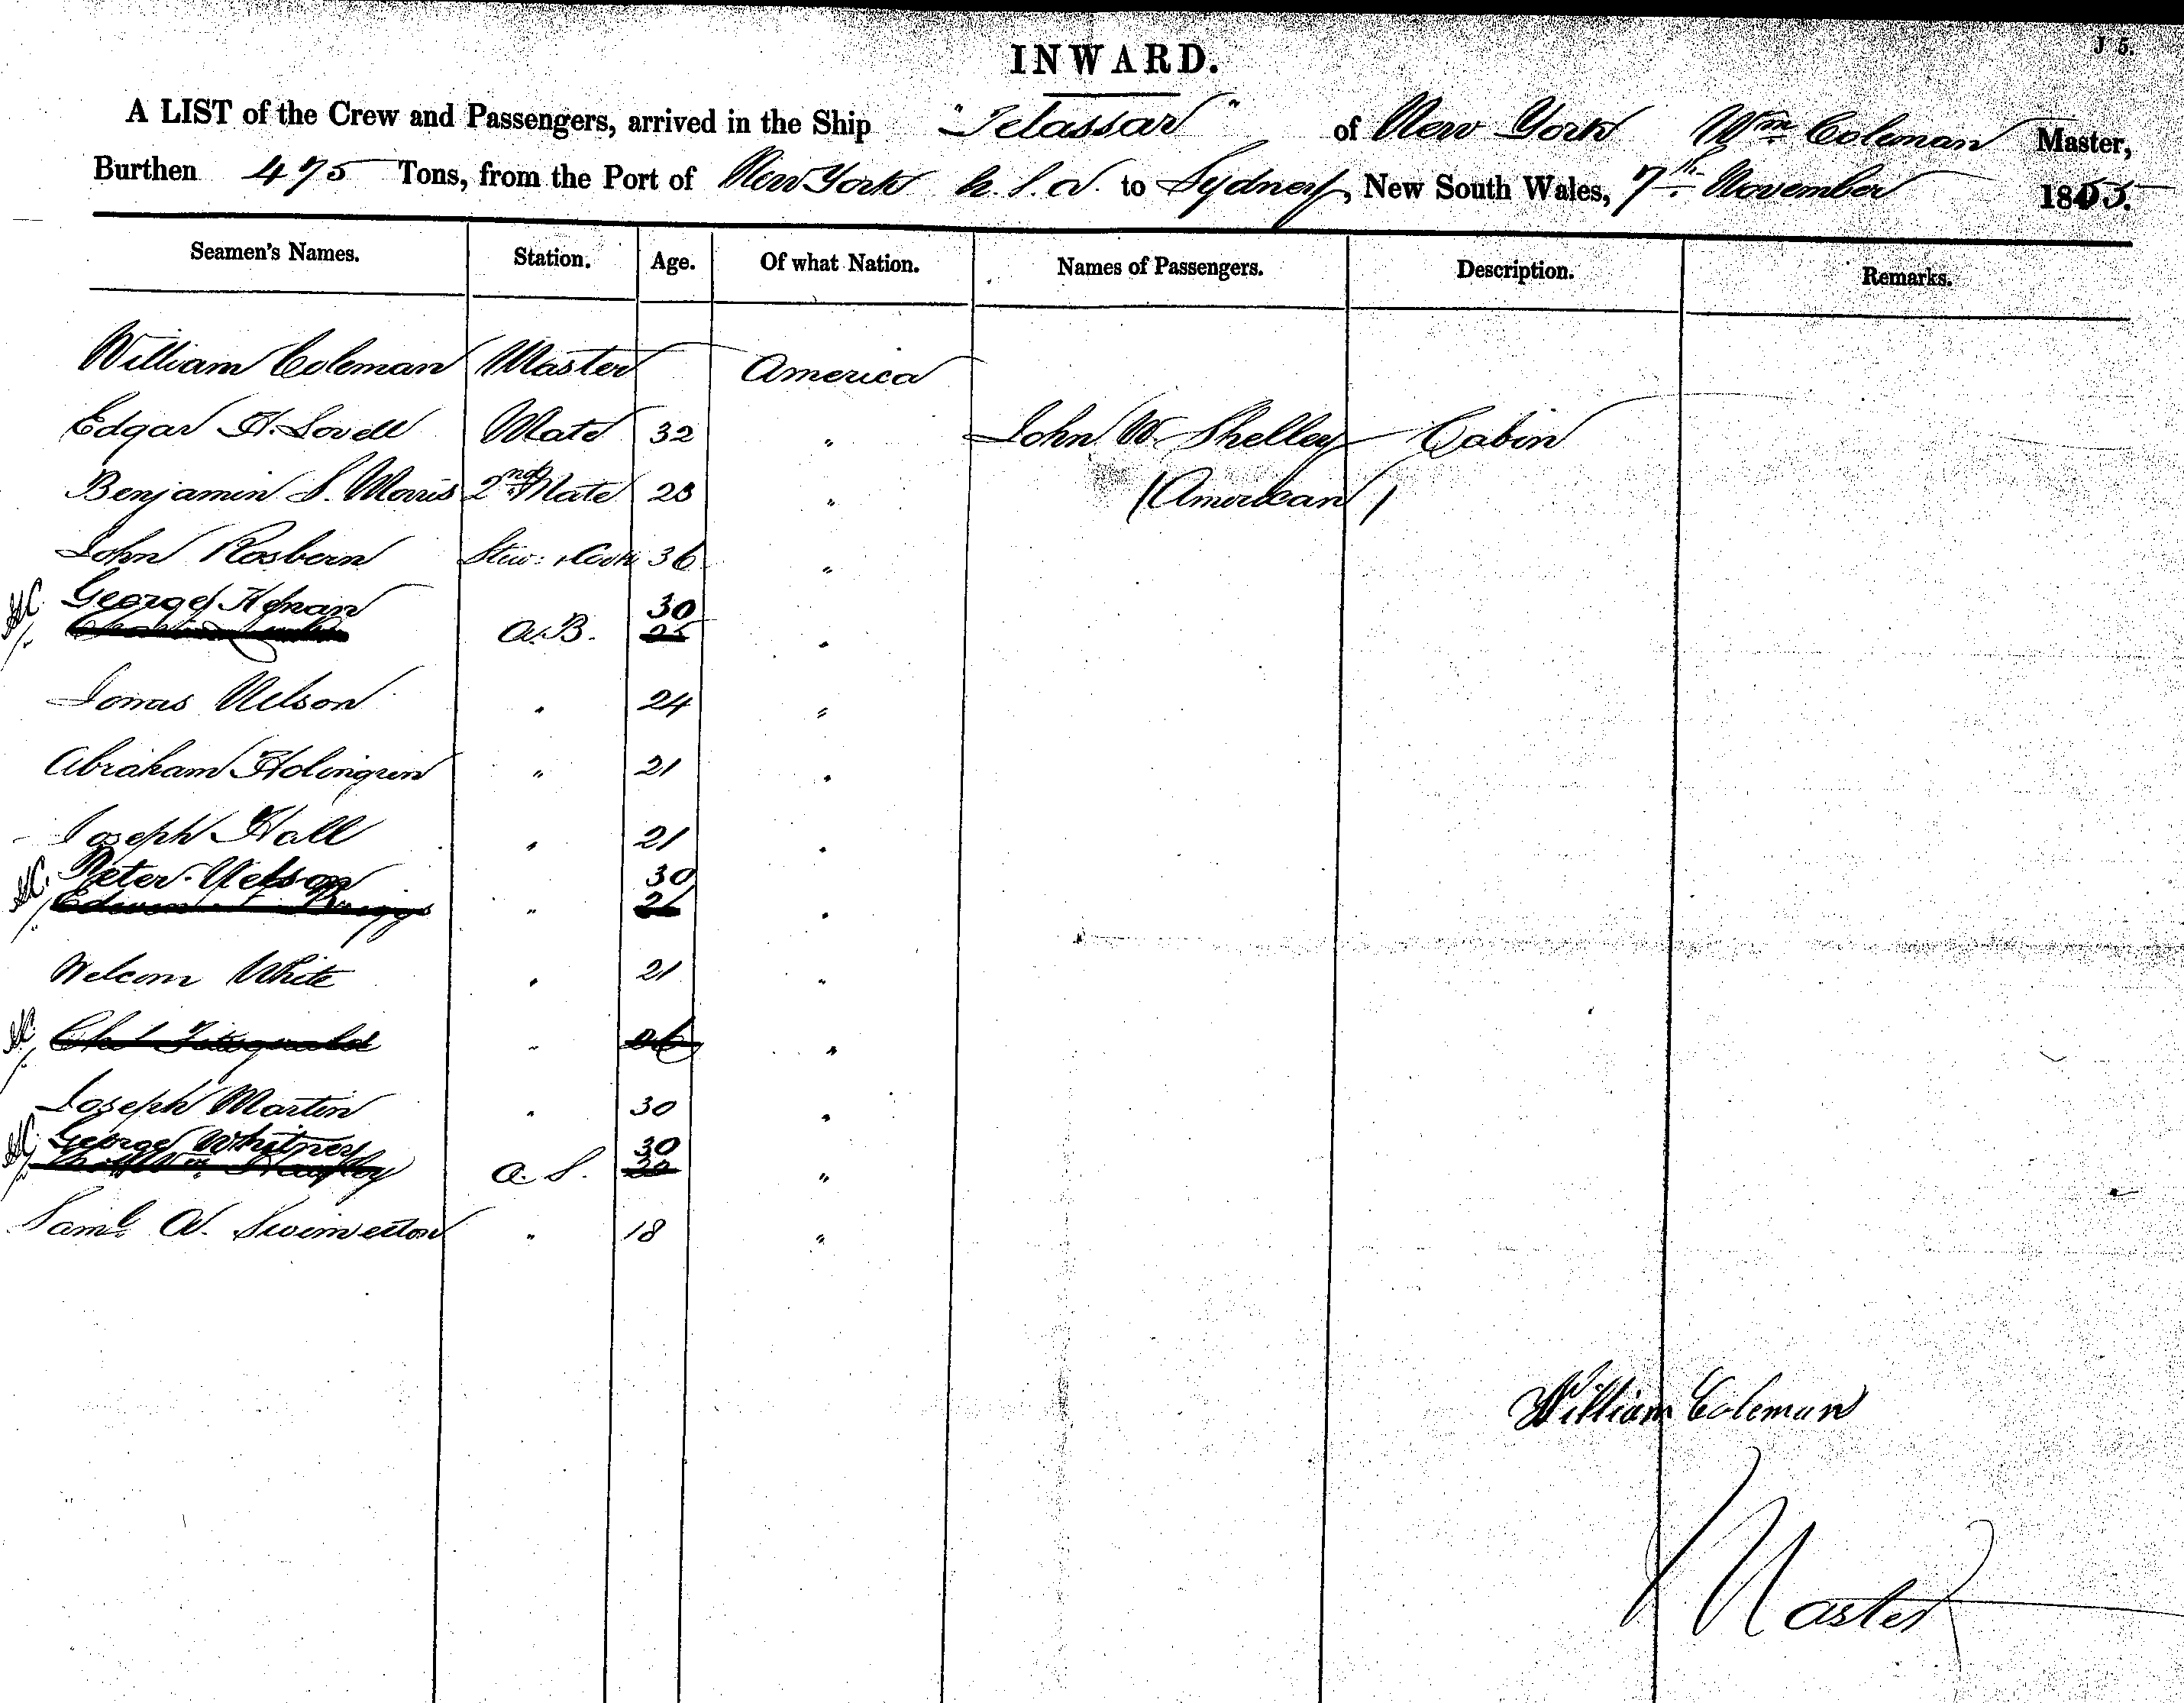 J 5.
INWARD.
A LIST of the Crew and Passengers, arrived in the Ship "Telassar" of New York Wm Coleman Master,
Burthen 475 Tons, from the Port of New York U.S.A. to Sydney, New South Wales, 7th November 1865.
Seamen's Names. Station. Age. Of what Nation. Names of Passengers. Description. Remarks.
William Coleman Master America
Edgar H. Lovell Mate 32 " John W. Shelley Cabin
Benjamin S. Morris 2nd Mate 23 " (American)
John Rosbern Stew: & Cook 36 "
George 30
A.B. 25 "
Jonas Nelson " 24 "
Abraham Holmgren " 21 "
Joseph Hall " 21 "
Peter Nelson 30
Briggs " "
Welcom White " 21 "
Chas Fitzgerald " 26 "
Joseph Martin " 30 "
George Whitney 30
O.S. "
Saml A. Swimerton " 18 "
William Coleman
Master